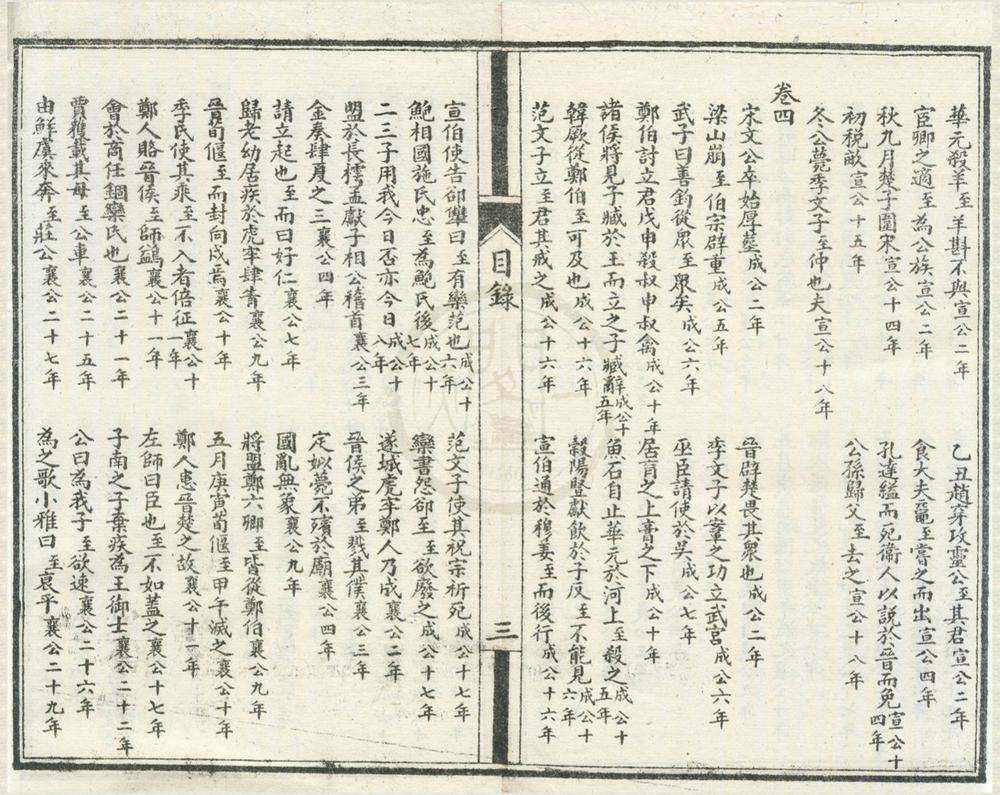 華元殺羊至羊斟不與宣公二年
乙丑趙穿攻靈公至其君宣公二年
宦卿之適至為公族宣公二年
食大夫黿至嘗之而出宣公四年
秋九月楚子圍宋宣公十四年
孔達縊而死衞人以説於晉而免宣公十四年
初税畝宣公十五年
公孫歸父至去之宣公十八年
冬公薨季文子至仲也夫宣公十八年
卷四
宋文公卒始厚葬成公二年
晉辟楚畏其衆也成公二年
梁山崩至伯宗辟重成公五年
季文子以鞌之功立武宮成公六年
武子曰善鈞從衆至衆矣成公六年
巫臣請使於吳成公七年
鄭伯討立君戊申殺叔申叔禽成公十年
居肓之上膏之下成公十年
諸侯將見子臧於王而立之子臧辭成公十五年
魚石自止華元於河上至殺之成公十五年
韓厥從鄭伯至可及也成公十六年
穀陽豎獻飲於子反至不能見成公十六年
范文子立至君其戒之成公十六年
宣伯通於穆姜至而後行成公十六年
目錄
三
宣伯使告郤犫曰至有欒范也成公十六年
范文子使其祝宗祈死成公十七年
鮑相國施氏忠至為鮑氏後成公十七年
欒書怨郤至至欲廢之成公十七年
二三子用我今日否亦今日成公十八年
遂城虎牢鄭人乃成襄公二年
盟於長樗孟獻子相公稽首襄公三年
晉侯之弟至戮其僕襄公三年
金奏肆夏之三襄公四年
定姒薨不殯於廟襄公四年
請立起也至而曰好仁襄公七年
國亂無象襄公九年
歸老幼居疾於虎牢肆眚襄公九年
將盟鄭六卿至皆從鄭伯襄公九年
晉荀偃至而封向戌焉襄公十年
五月庚寅荀偃至甲午滅之襄公十年
季氏使其乘至不入者倍征襄公十一年
鄭人患晉楚之故襄公十一年
鄭人賂晉侯至師鐲襄公十一年
左師曰臣也至不如蓋之襄公十七年
會於商任錮欒氏也襄公二十一年
子南之子棄疾為王御士襄公二十二年
賈獲載其母至公車襄公二十五年
公曰為我子至欲速襄公二十六年
由鮮虞來奔至莊公襄公二十七年
為之歌小雅曰至哀乎襄公二十九年